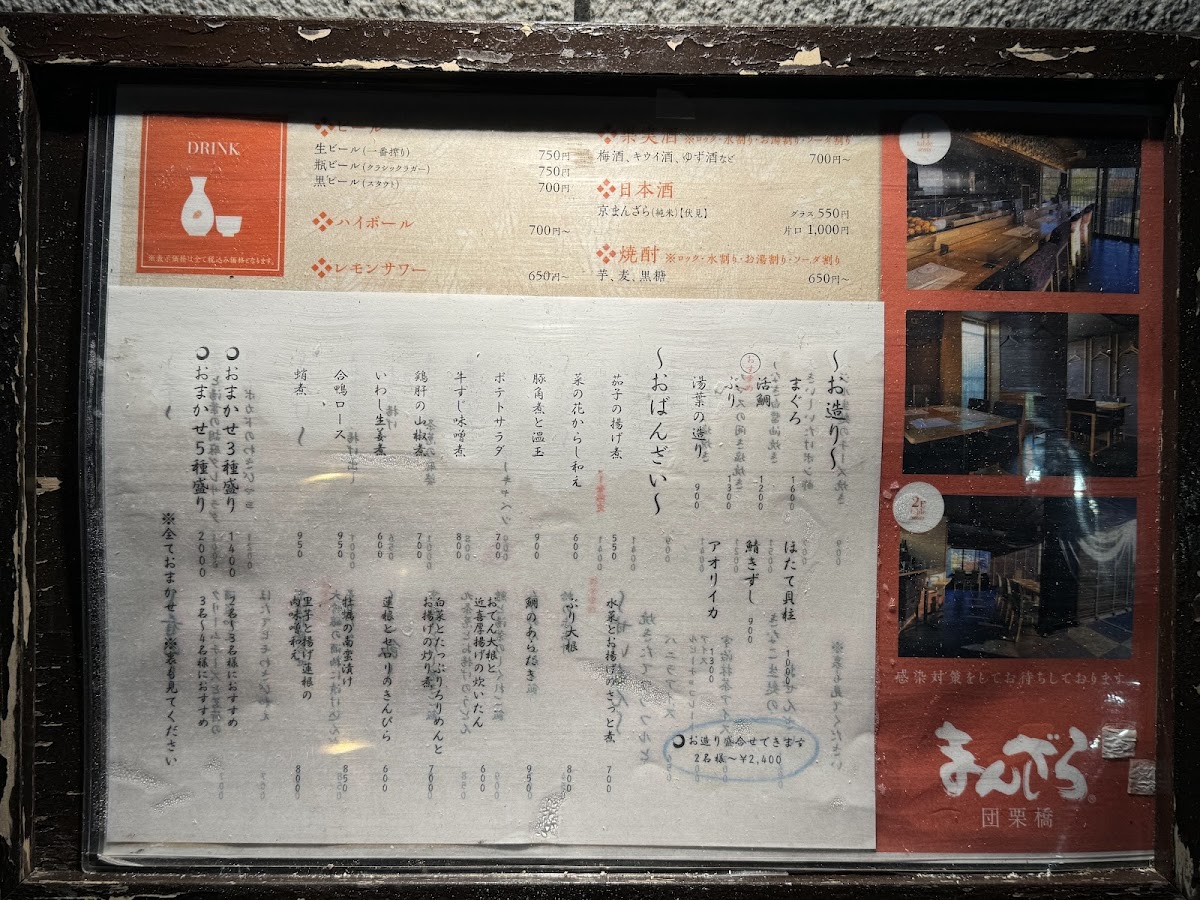 DRINK
※表示価格は全て税込み価格となります。
ビール
生ビール(一番搾り) 750円
瓶ビール(クラシックラガー) 750円
黒ビール(スタウト) 700円
ハイボール
700円～
レモンサワー 650円～
果実酒 ※ロック・水割り・お湯割り・ソーダ割り
梅酒、キウイ酒、ゆず酒など 700円～
日本酒
京まんざら(純米)【伏見】 グラス 550円
片口 1,000円
焼酎 ※ロック・水割り・お湯割り・ソーダ割り
芋、麦、黒糖 650円～
～お造り～
まぐろ 1600
活鯛 1200
ぶり 1300
湯葉の造り 900
ほたて貝柱 1000
鯖きずし 900
アオリイカ 1300
お造り盛合せできます
2名様～¥2,400
～おばんざい～
茄子の揚げ煮 550
菜の花からし和え 600
豚角煮と温玉 900
ポテトサラダ 700
牛すじ味噌煮 800
鶏肝の山椒煮 700
いわし生姜煮 600
合鴨ロース 950
蛸煮 950
水菜とお揚げのさっと煮 700
ぶり大根 800
鯛のあらだき 950
おでん大根と
近喜厚揚げの炊いたん 600
白菜とたっぷりろりめんと
お揚げの炒り煮 700
蓮根とせりのきんぴら 600
牡蠣の南蛮漬け 850
里子と揚げ蓮根の
肉味噌和え 800
おまかせ3種盛り 1400 2名～3名様におすすめ
おまかせ5種盛り 2000 3名～4名様におすすめ
※全ておまかせ ※裏も見てください
2F
感染対策をしてお待ちしております。
まんざら
団栗橋